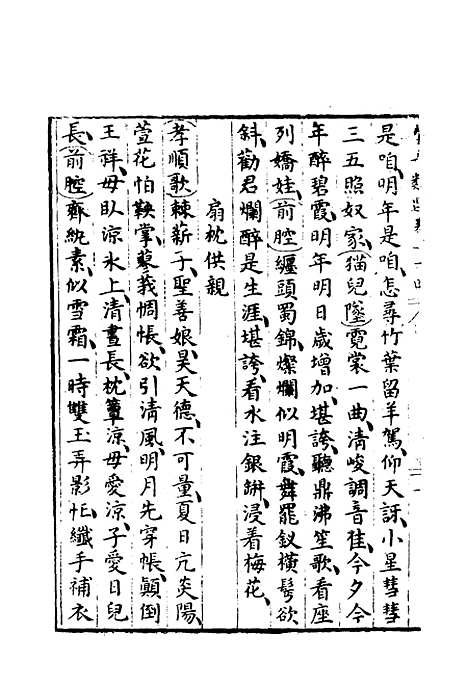 是咱明年是咱怎尋竹葉留羊駕仰天訝小星彗彗
三五照奴家猫兒墜霓裳一曲清峻調音佳今夕今
年醉碧霞明年明日歲增加堪誇聽鼎沸笙歌看座
列嬌娃前腔纏頭蜀錦燦爛似明霞舞罷釵橫髩欲
斜勸君爛醉是生涯堪誇看水注銀缾浸着梅花
扇枕供親
孝順歌棘薪子聖善娘昊天德不可量夏日亢炎陽
萱花怕鞅掌蓼莪惆悵欲引清風明月先穿帳顛倒
王祥母臥涼氷上清晝長枕簟涼母愛涼子愛日兒
長前腔齊紈素似雪霜一時雙玉弄影忙纖手補衣